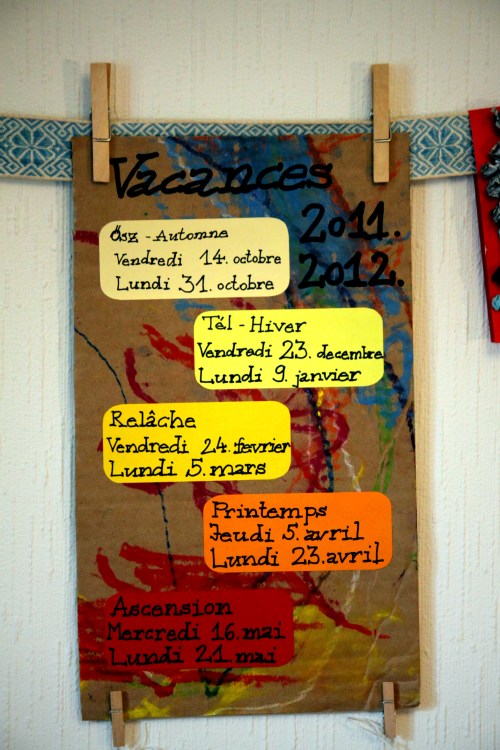 Vacances
2011.
2012.
Ősz - Automne
Vendredi 14. octobre
Lundi 31. octobre
Tél - Hiver
Vendredi 23. decembre
Lundi 9. janvier
Relâche
Vendredi 24. février
Lundi 5. mars
Printemps
Jeudi 5. avril
Lundi 23. avril
Ascension
Mercredi 16. mai
Lundi 21. mai